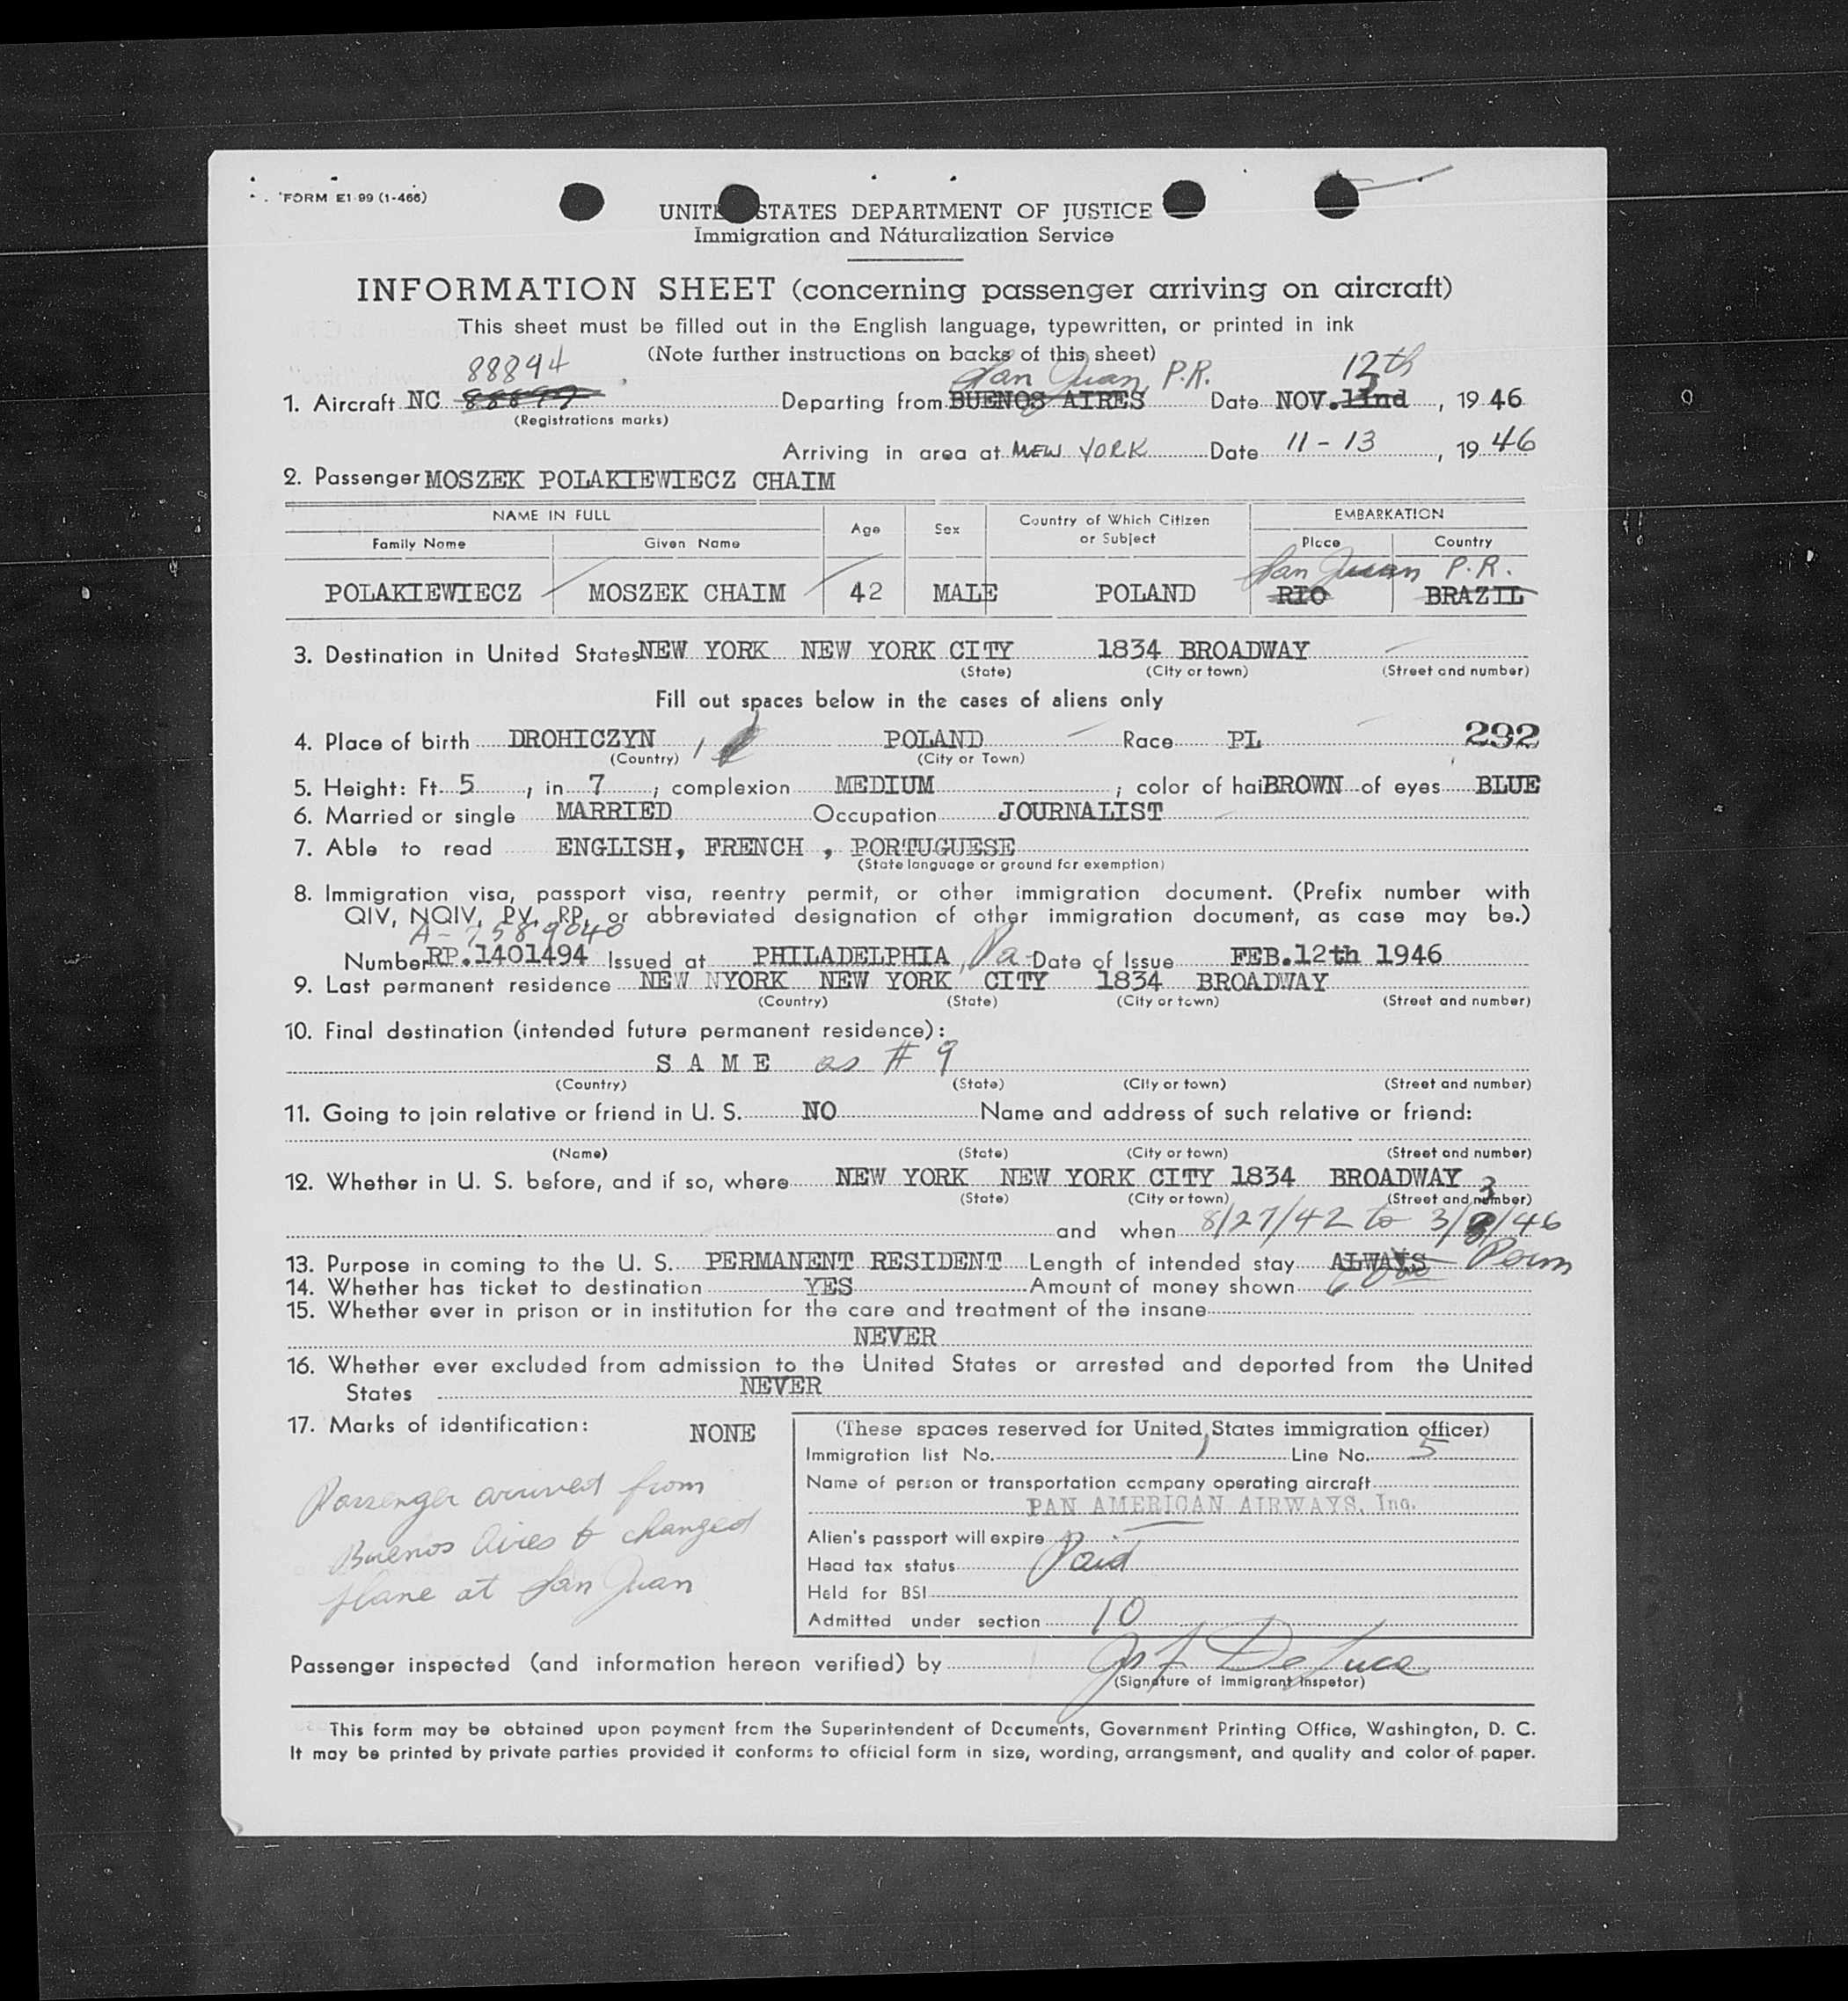 FORM E1-99 (1-466)
UNITED STATES DEPARTMENT OF JUSTICE
Immigration and Naturalization Service
INFORMATION SHEET (concerning passenger arriving on aircraft)
This sheet must be filled out in the English language, typewritten, or printed in ink
(Note further instructions on backs of this sheet)
88894 San Juan, P.R. 12th
1. Aircraft NC Departing from BUENOS AIRES Date NOV. , 19 46
(Registrations marks)
Arriving in area at NEW YORK Date 11-13, 19 46
2. Passenger MOSZEK POLAKIEWIECZ CHAIM
NAME IN FULL Age Sex Country of Which Citizen or Subject EMBARKATION
Family Name Given Name Place Country
San Juan P.R.
POLAKIEWIECZ MOSZEK CHAIM 42 MALE POLAND RIO BRAZIL
3. Destination in United States NEW YORK NEW YORK CITY 1834 BROADWAY
(State) (City or town) (Street and number)
Fill out spaces below in the cases of aliens only
4. Place of birth DROHICZYN POLAND Race PL 292
(Country) (City or Town)
5. Height: Ft. 5, in 7; complexion MEDIUM; color of hai BROWN of eyes BLUE
6. Married or single MARRIED Occupation JOURNALIST
7. Able to read ENGLISH, FRENCH , PORTUGUESE
(State language or ground for exemption)
8. Immigration visa, passport visa, reentry permit, or other immigration document. (Prefix number with
QIV, NQIV, PV, RP, or abbreviated designation of other immigration document, as case may be.)
A-7589040
Number RP.1401494 Issued at PHILADELPHIA, Pa Date of Issue FEB.12th 1946
9. Last permanent residence NEW NYORK NEW YORK CITY 1834 BROADWAY
(Country) (State) (City or town) (Street and number)
10. Final destination (intended future permanent residence):
S A M E as # 9
(Country) (State) (City or town) (Street and number)
11. Going to join relative or friend in U. S. NO Name and address of such relative or friend:
(Name) (State) (City or town) (Street and number)
12. Whether in U. S. before, and if so, where NEW YORK NEW YORK CITY 1834 BROADWAY
(State) (City or town) (Street and number)
and when 8/27/42 to 3/3/46
13. Purpose in coming to the U. S. PERMANENT RESIDENT Length of intended stay ALWAYS Perm
14. Whether has ticket to destination YES Amount of money shown
15. Whether ever in prison or in institution for the care and treatment of the insane
NEVER
16. Whether ever excluded from admission to the United States or arrested and deported from the United
States NEVER
17. Marks of identification: NONE
Passenger arrived from
Buenos Aires & changed
plane at San Juan
(These spaces reserved for United States immigration officer)
Immigration list No. 1 Line No. 5
Name of person or transportation company operating aircraft
PAN AMERICAN AIRWAYS, Inc.
Alien's passport will expire
Head tax status Paid
Held for BSI
Admitted under section 10
Passenger inspected (and information hereon verified) by Jos F De Luca
(Signature of Immigrant Inspetor)
This form may be obtained upon payment from the Superintendent of Documents, Government Printing Office, Washington, D. C.
It may be printed by private parties provided it conforms to official form in size, wording, arrangement, and quality and color of paper.